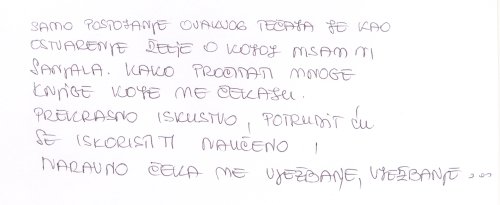 SAMO POSTOJANJE OVAKVOG TEČAJA JE KAO
OSTVARENJE ŽELJE O KOJOJ NISAM NI
SANJALA. KAKO PROČITATI MNOGE
KNJIGE KOJE ME ČEKAJU.
PREKRASNO ISKUSTVO, POTRUDIT ĆU
SE ISKORISTITI NAUČENO I
NARAVNO ČEKA ME VJEŽBANJE, VJEŽBANJE...